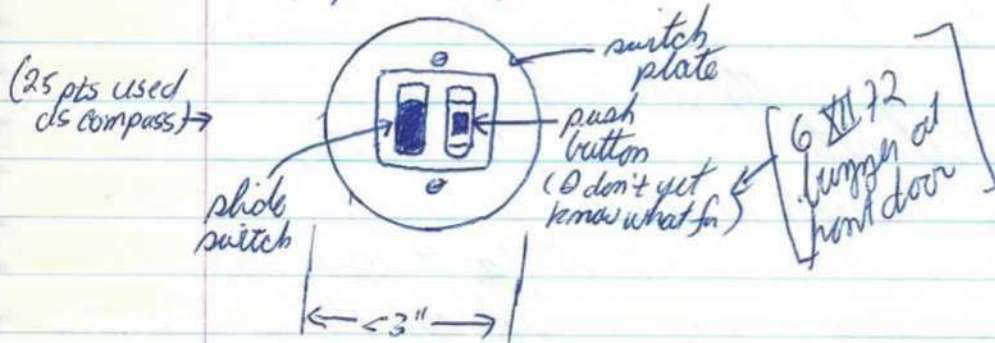 (25 pts used
as compass)
switch
plate
push
button
(I don't yet
know what for)
6 XII 72
buzzer at
front door
slide
switch
<3"